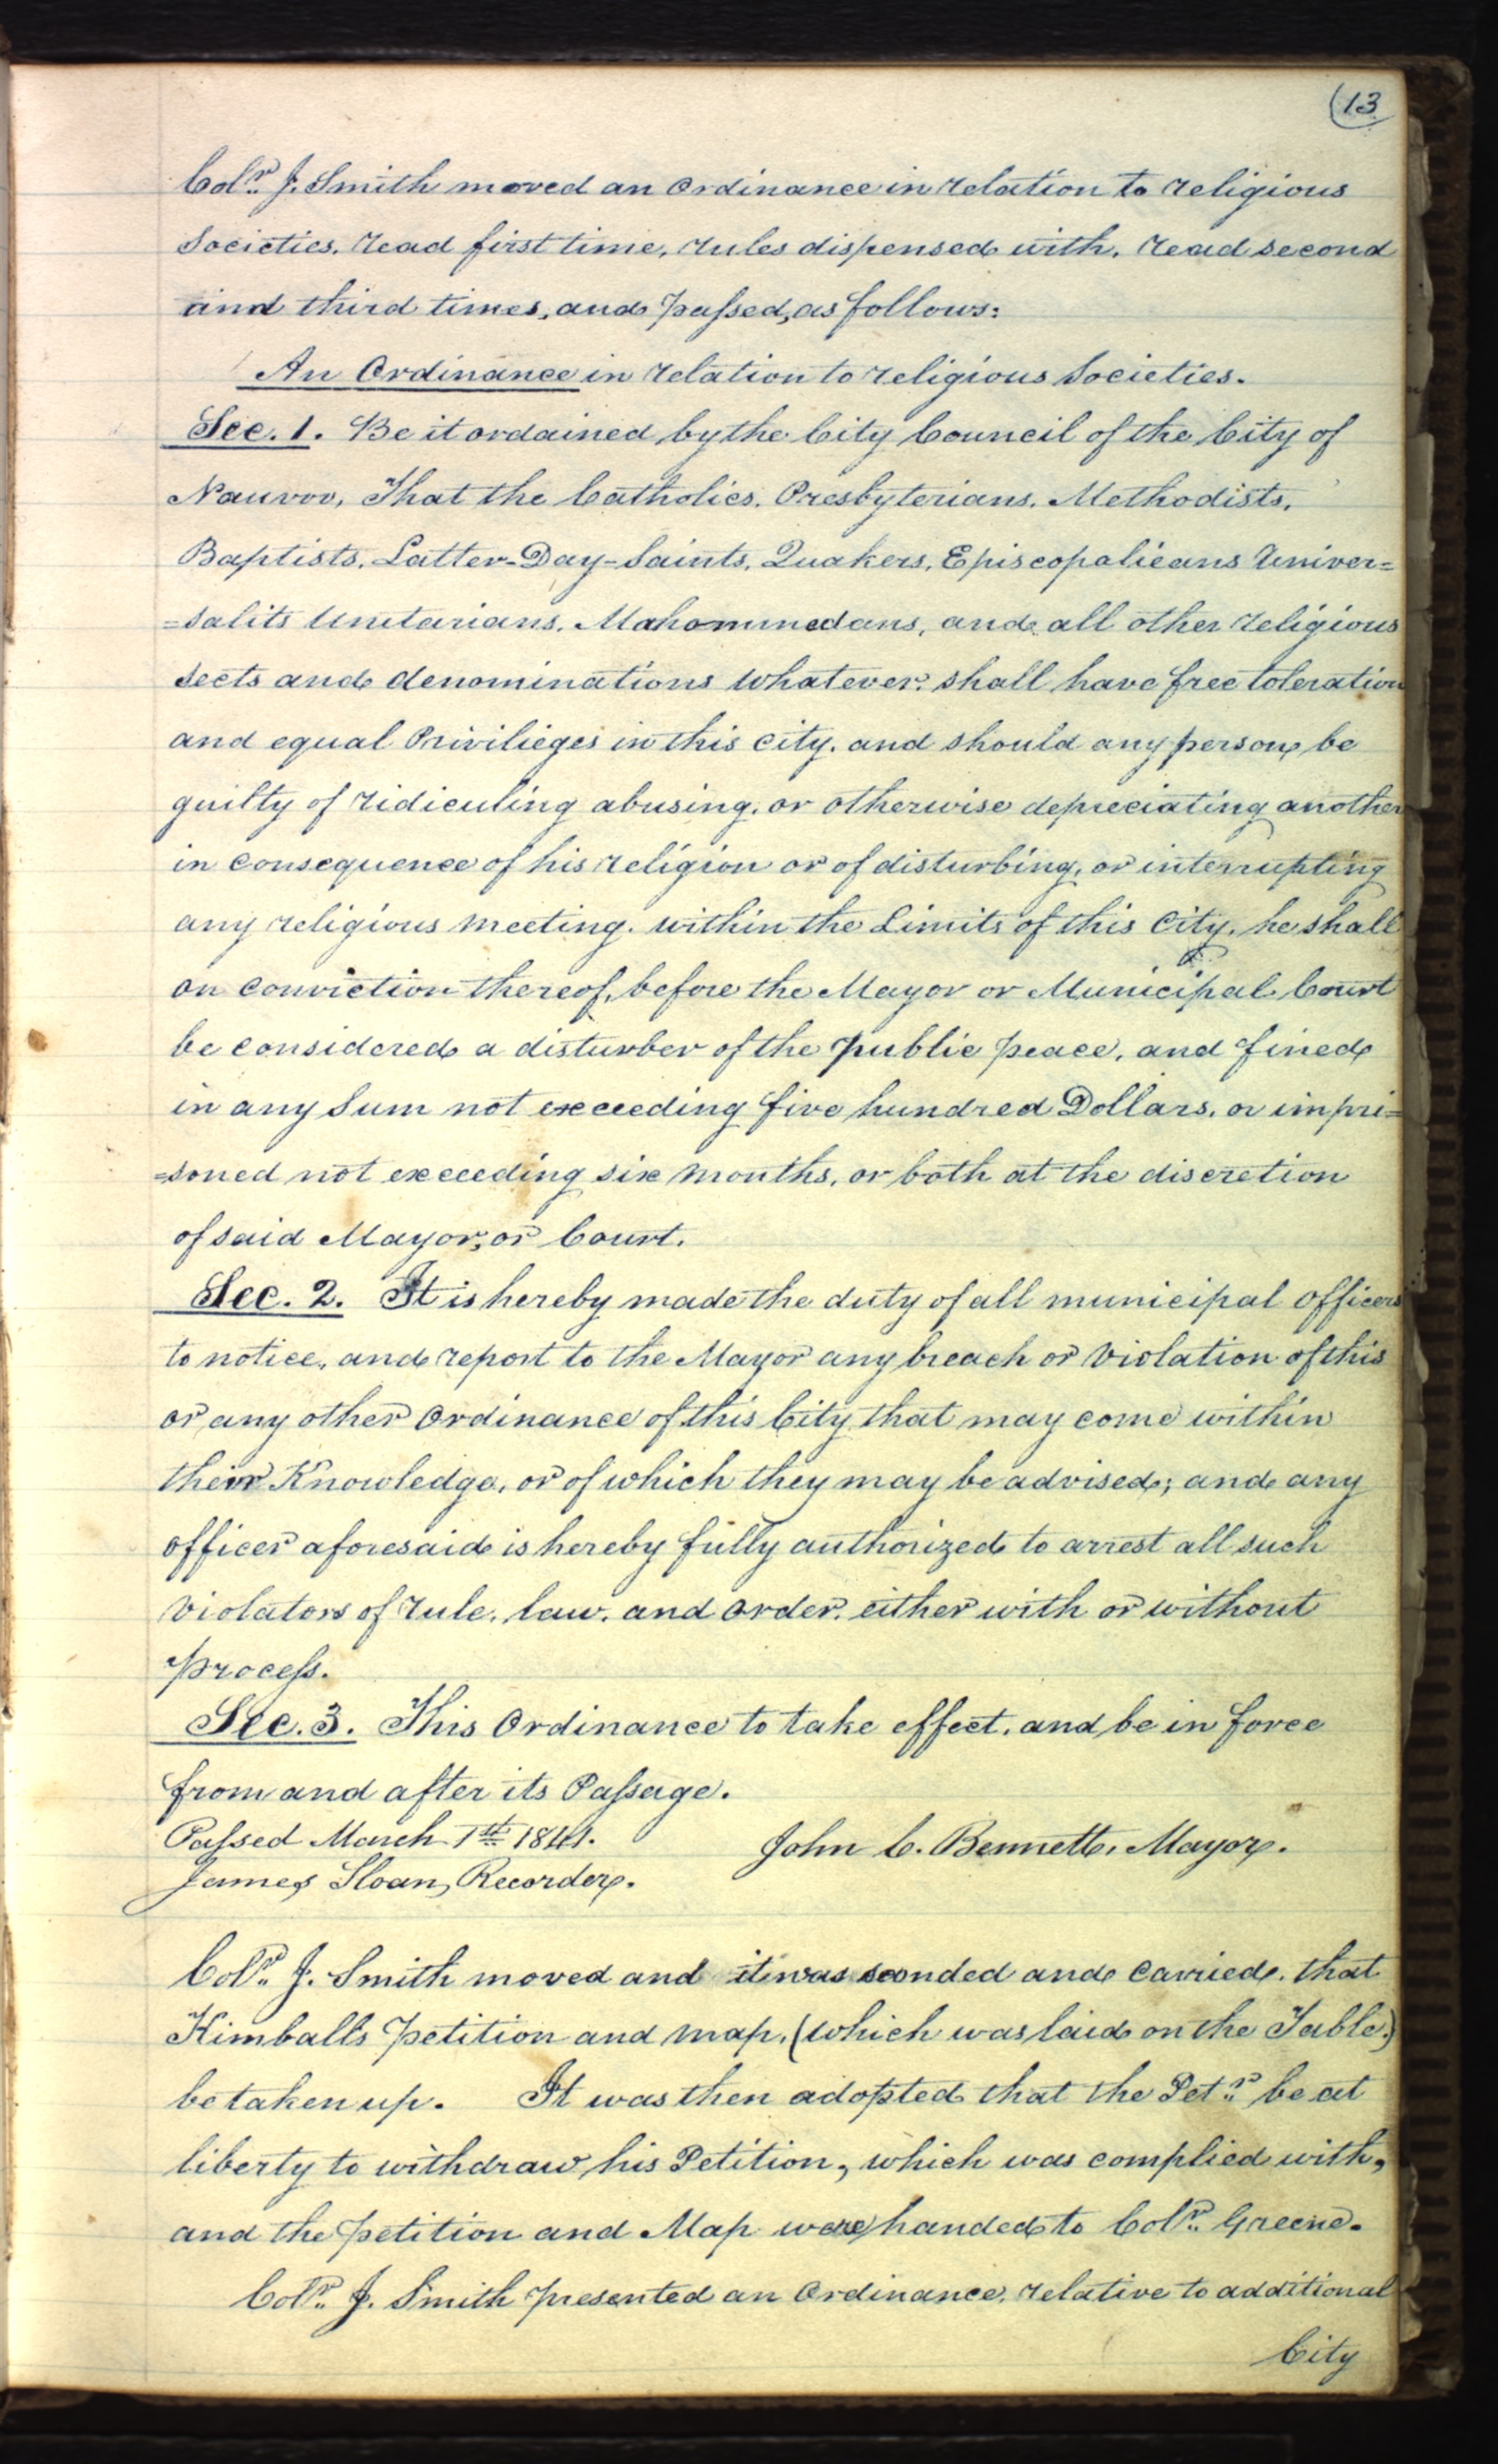 (13
Colr. J. Smith moved an Ordinance in relation to religious
Societies. read first time, rules dispensed with. read second
and third times, and passed, as follows:
An Ordinance in relation to religious Societies.
Sec. 1. Be it ordained by the City Council of the City of
Nauvoo, That the Catholics. Presbyterians. Methodists,
Baptists. Latter-Day-Saints. Quakers, Episcopalieans Univer=
=salits Unitarians. Mahommedans, and all other religious
sects and denominations whatever. shall have free toleration
and equal Privilieges in this city. and should any person be
guilty of ridiculing abusing. or otherwise depreciating another
in consequence of his religion or of disturbing, or interrupting
any religious meeting. within the Limits of this City, he shall
on conviction thereof, before the Mayor or Municipal Court
be considered a disturber of the public peace, and fined
in any Sum not exceeding five hundred Dollars. or impri=
=soned not exceeding six months, or both at the discretion
of said Mayor, or Court.
Sec. 2. It is hereby made the duty of all municipal officers
to notice, and report to the Mayor any breach or violation of this
or any other Ordinance of this City that may come within
their Knowledge, or of which they may be advised; and any
officer aforesaid is hereby fully authorized to arrest all such
violators of rule, law, and order, either with or without
process.
Sec. 3. This Ordinance to take effect, and be in force
from and after its Passage.
Passed March 1st 1841.
John C. Bennett, Mayor.
James Sloan, Recorder.
Colr. J. Smith moved and it was seonded and carried, that
Kimball's petition and map, (which was laid on the Table)
be taken up. It was then adopted that the Petr. be at
liberty to withdraw his Petition, which was complied with,
and the petition and Map were handed to Colr. Greene.
Colr. J. Smith presented an Ordinance, relative to additional
City